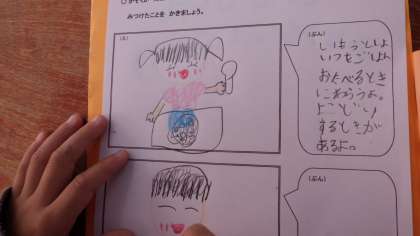 みつけたことを かきましょう。
(え)
(ぶん)
いつもごはん
おたべるとき
にわらうよ。
よこどり
するときが
あるよ。
(ぶん)